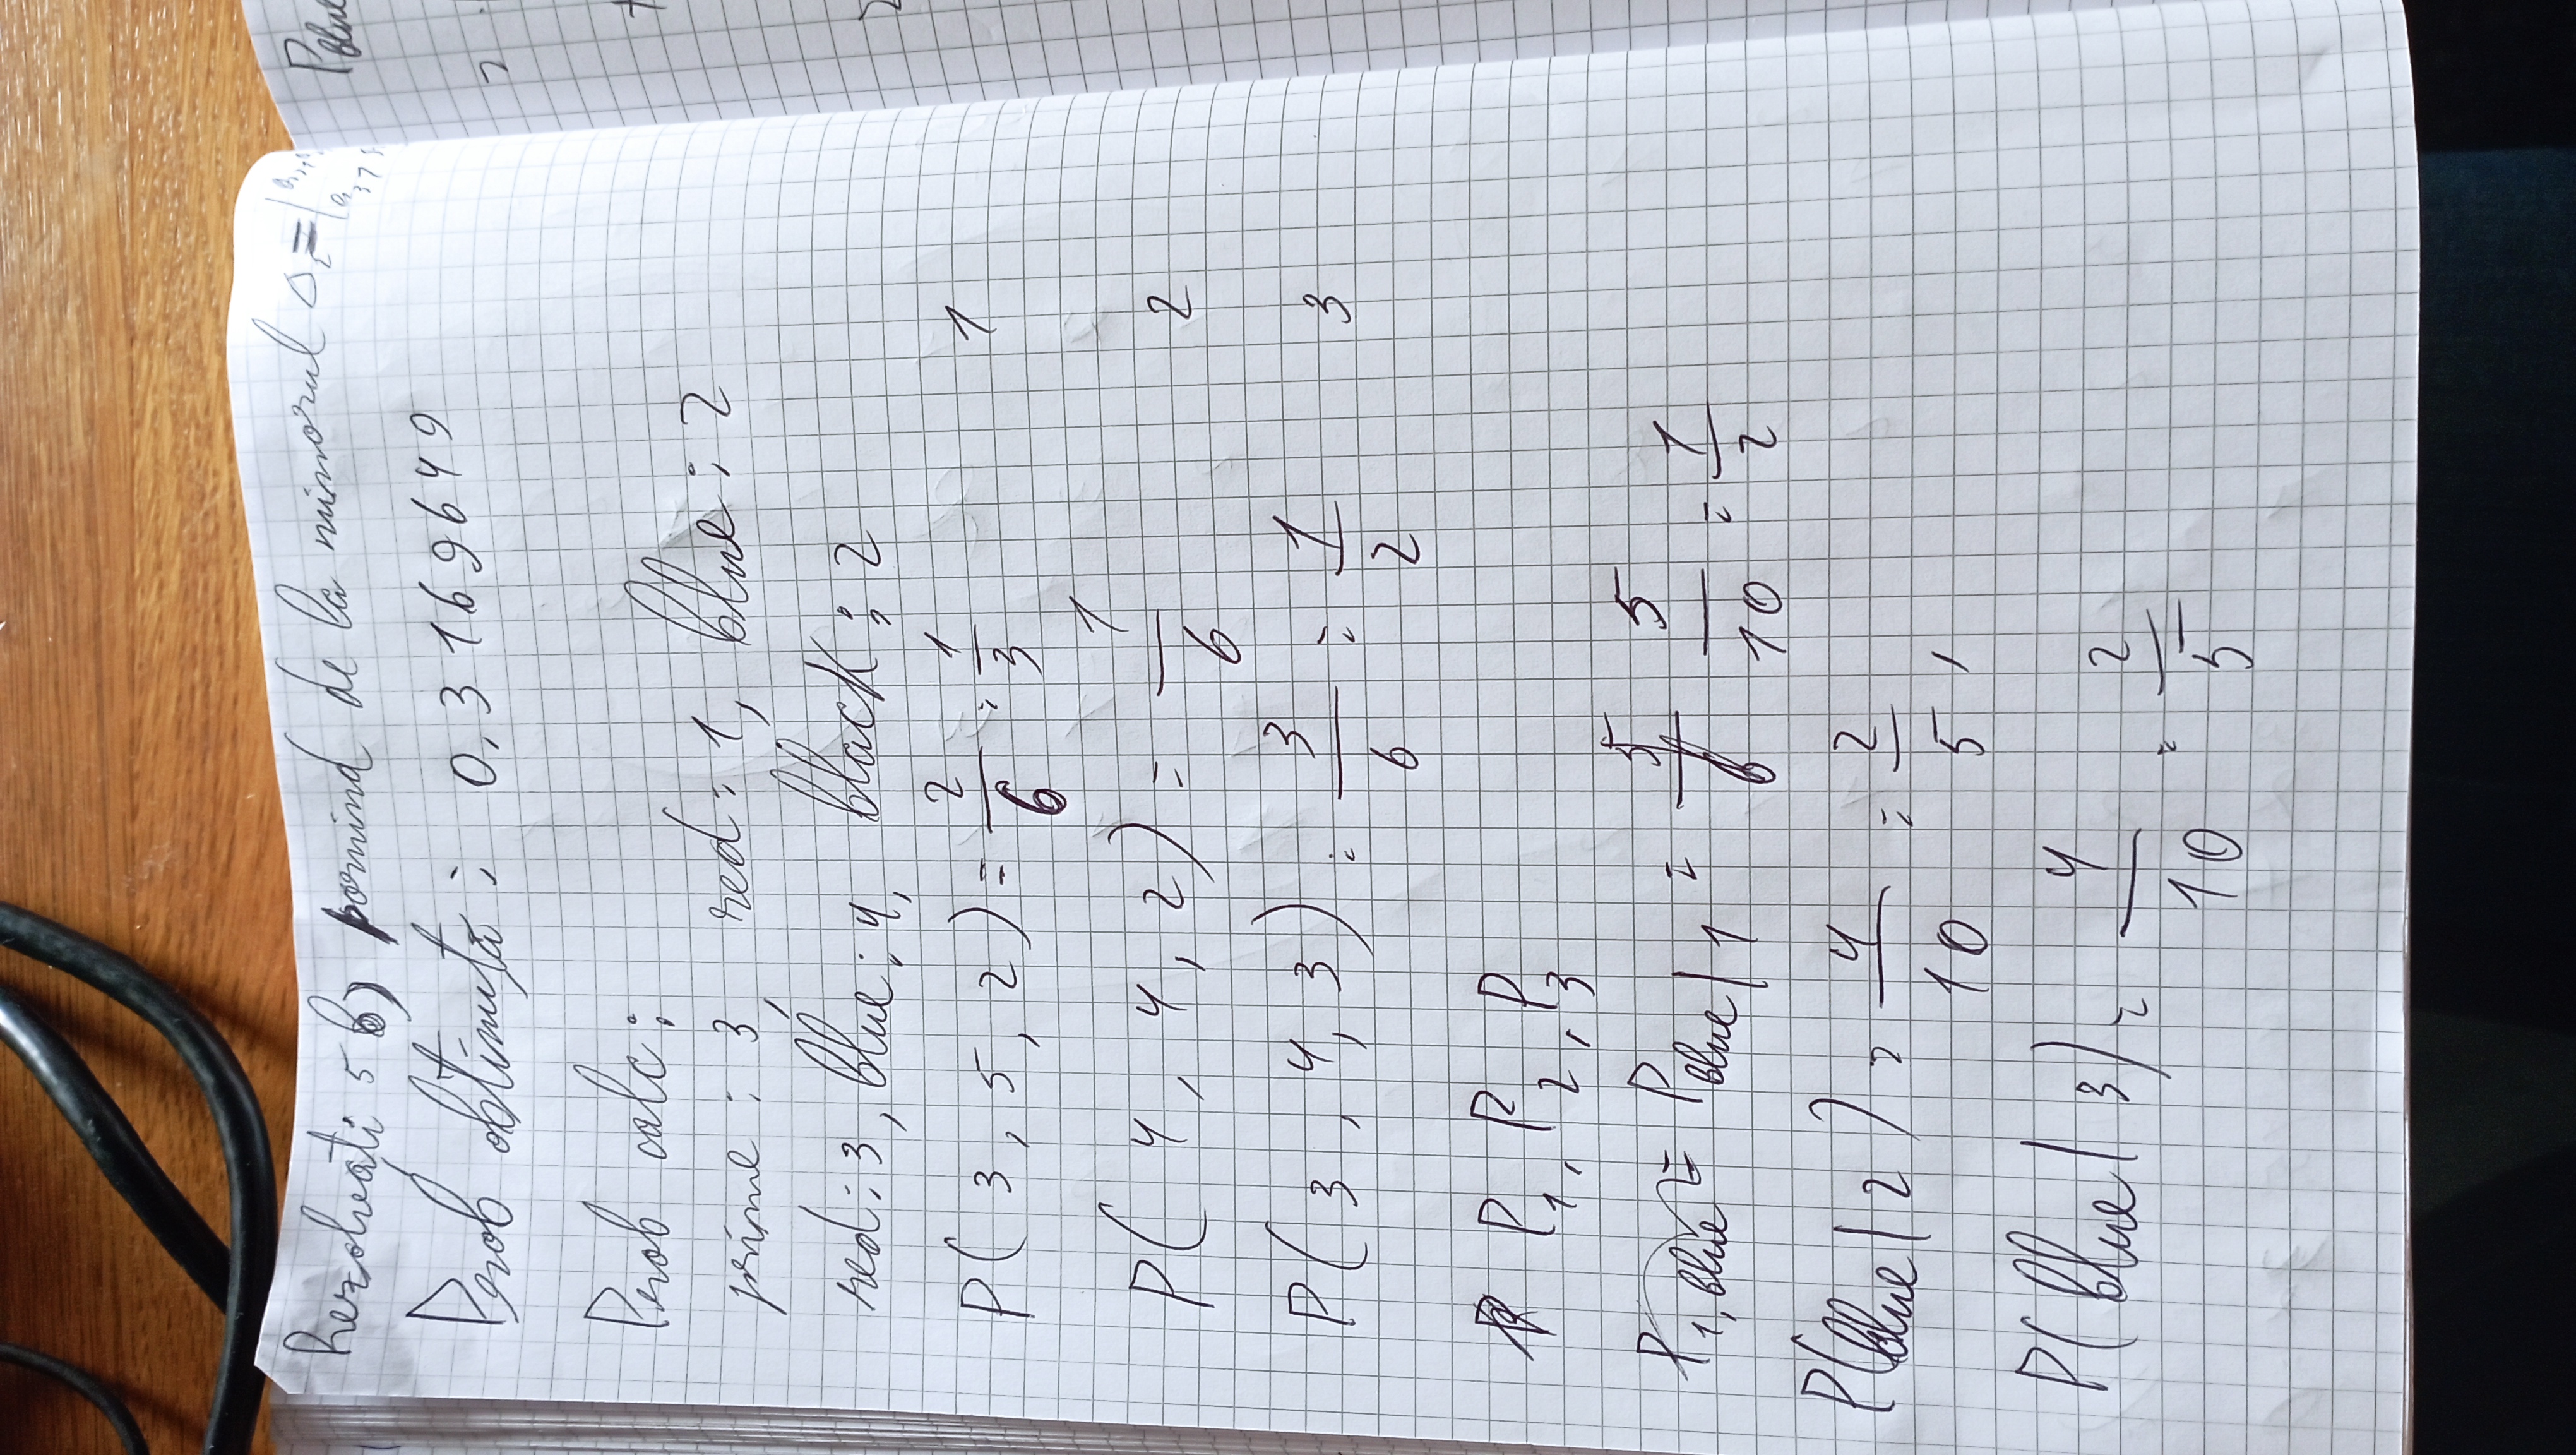 Rezolvați 5 b) pornind de la minorul Δ₂ = |
Prob obtinută : 0,3169649
Prob calc :
prime : 3, red : 1, blue : 2
red : 3, blue : 4, black : 2
P( 3, 5, 2) = 2/6 = 1/3 1
P( 4, 4, 2) = 1/6 2
P( 3, 4, 3) = 3/6 = 1/2 3
P₁, P₂, P₃
P₁,blue = P blue|1 = 5/10 = 1/2
P(blue|2) = 4/10 = 2/5,
P(blue|3) = 4/10 = 2/5
Pblue